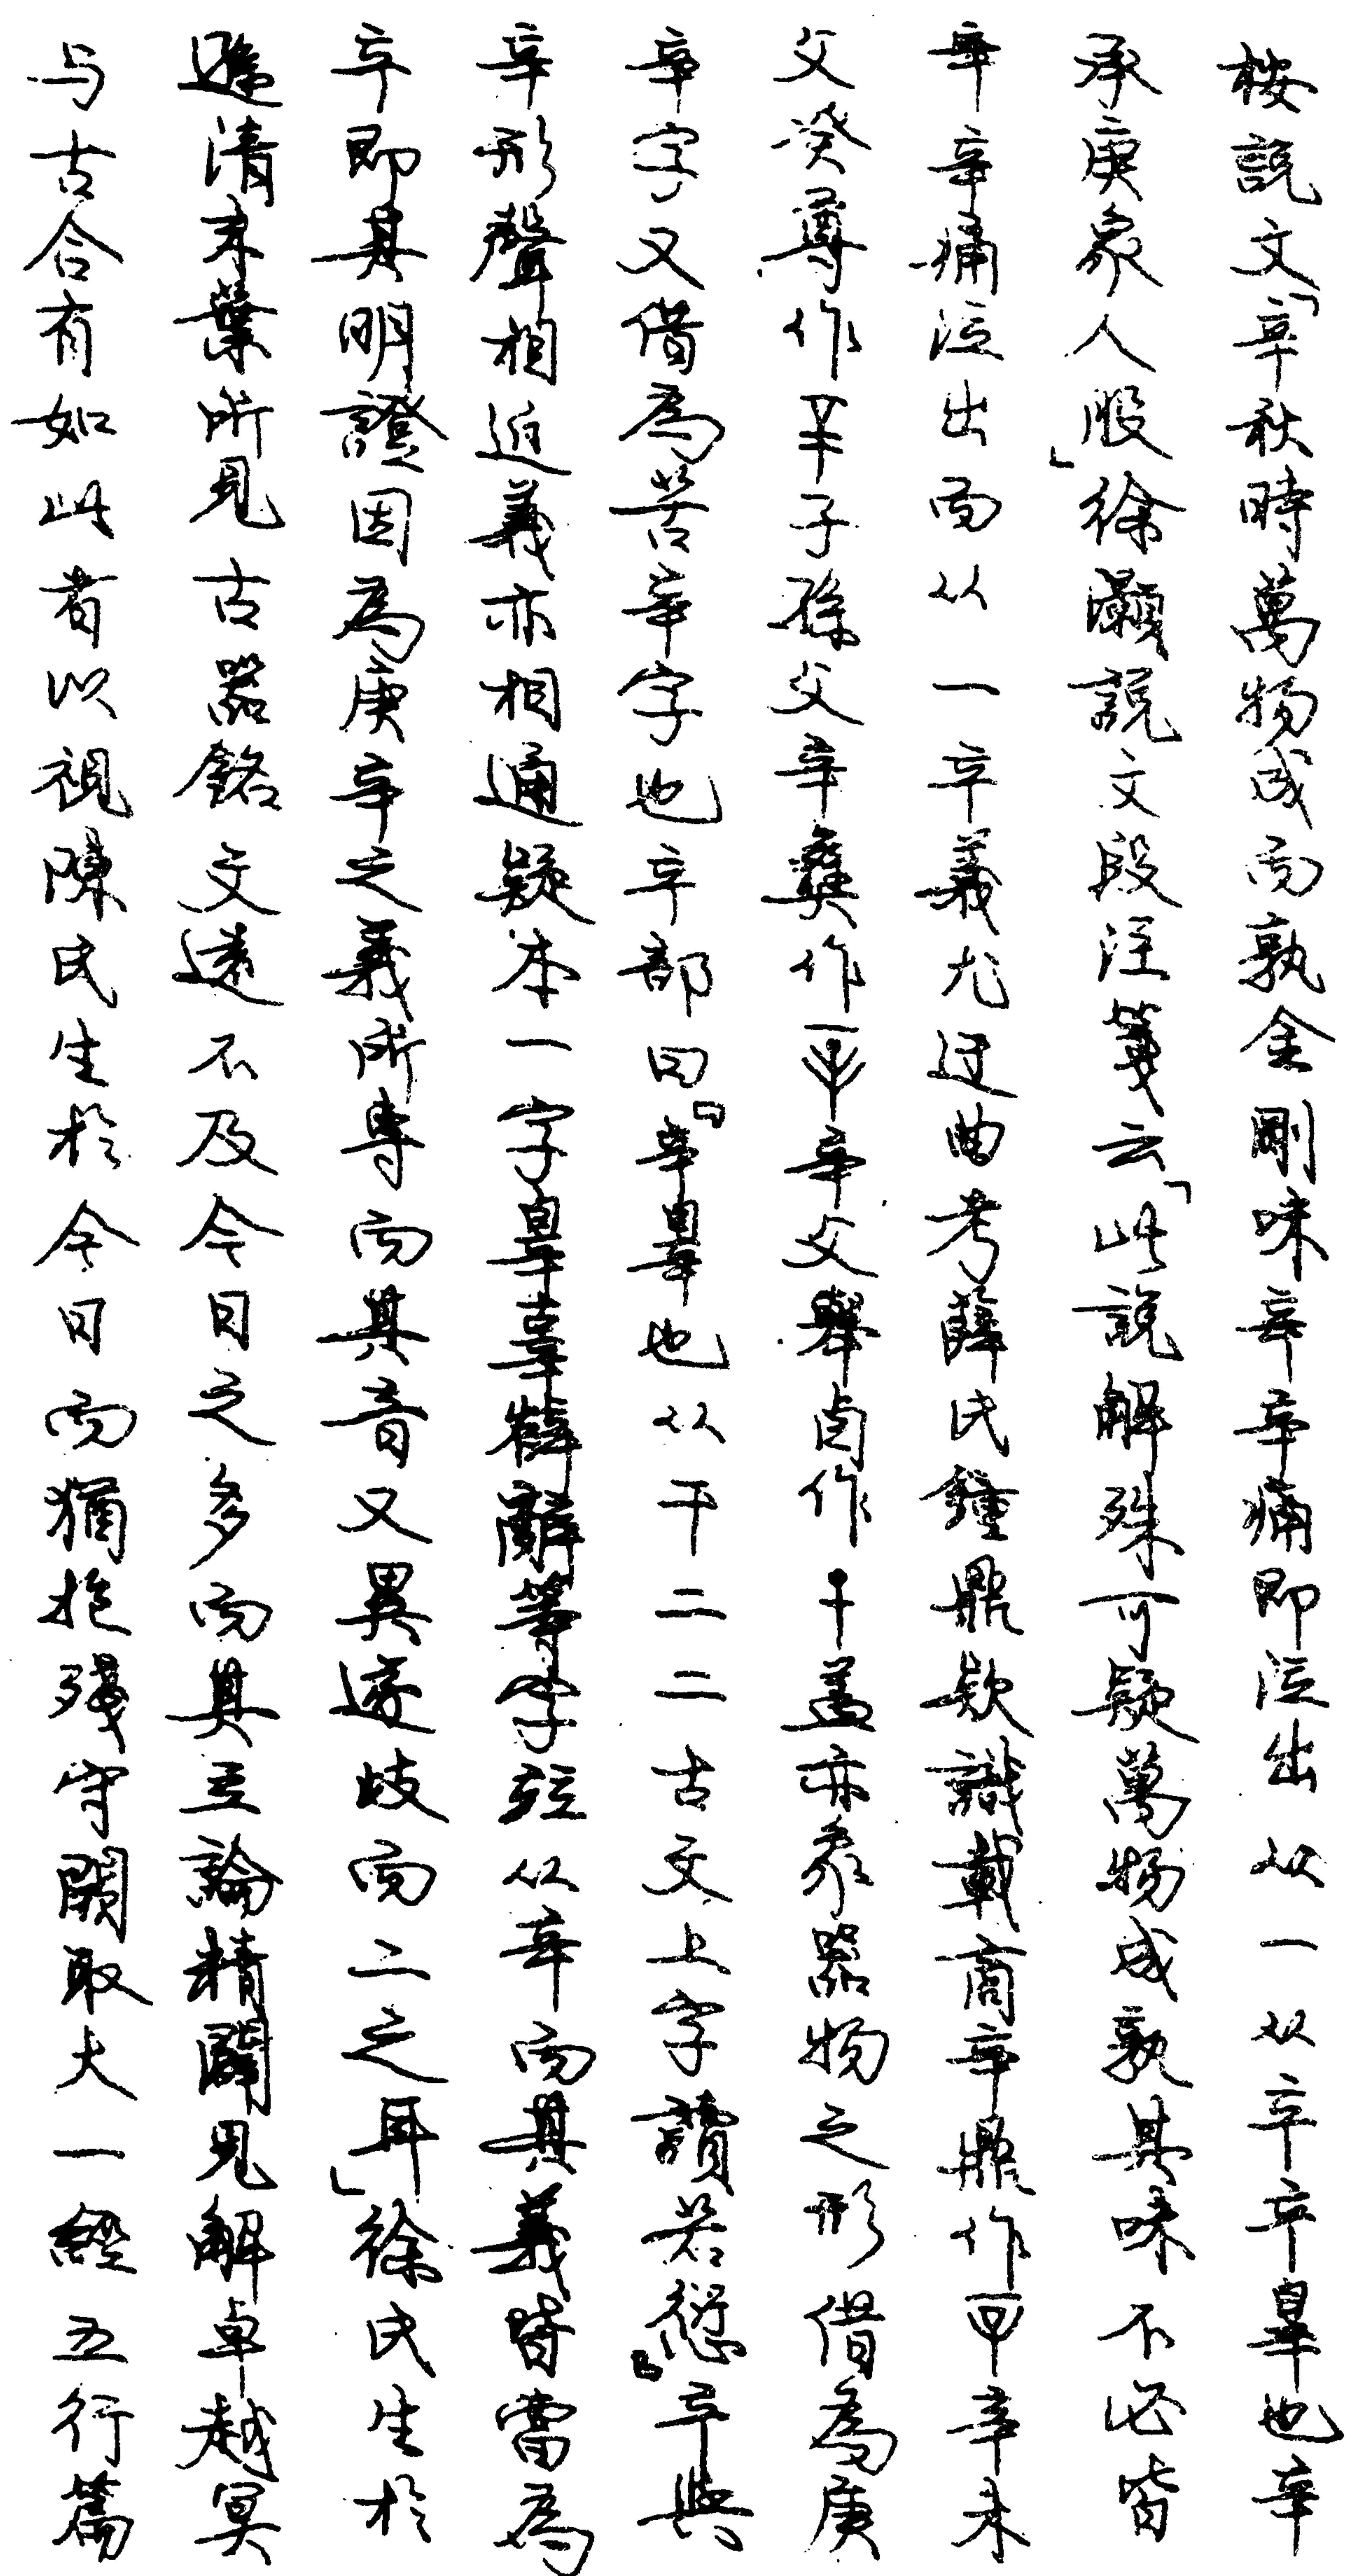 桉説文「辛秋時萬物成而孰金剛味辛辛痛即泣出从一从䇂䇂辠也辛
承庚象人股」徐灝説文段注箋云「此説解殊可疑萬物成孰其味不必皆
辛辛痛泣出而从一䇂義尤迂曲考薛氏鐘鼎欵識載商辛鼎作辛未
父癸尊作子孫父辛彝作辛父舉卣作蓋亦象器物之形借為庚
辛字又借為苦辛字也䇂部曰『䇂辠也从干二二古文上字讀若愆』䇂與
辛形聲相近義亦相通疑本一字辠辜辥辭等字竝从辛而其義皆當為
䇂即其明證因為庚辛之義所專而其音又異遂歧而二之耳」徐氏生於
遜清末葉所見古器銘文遠不及今日之多而其立論精闢見解卓越冥
与古合有如此者以視陳氏生於今日而猶抱殘守闕取大一經五行篇